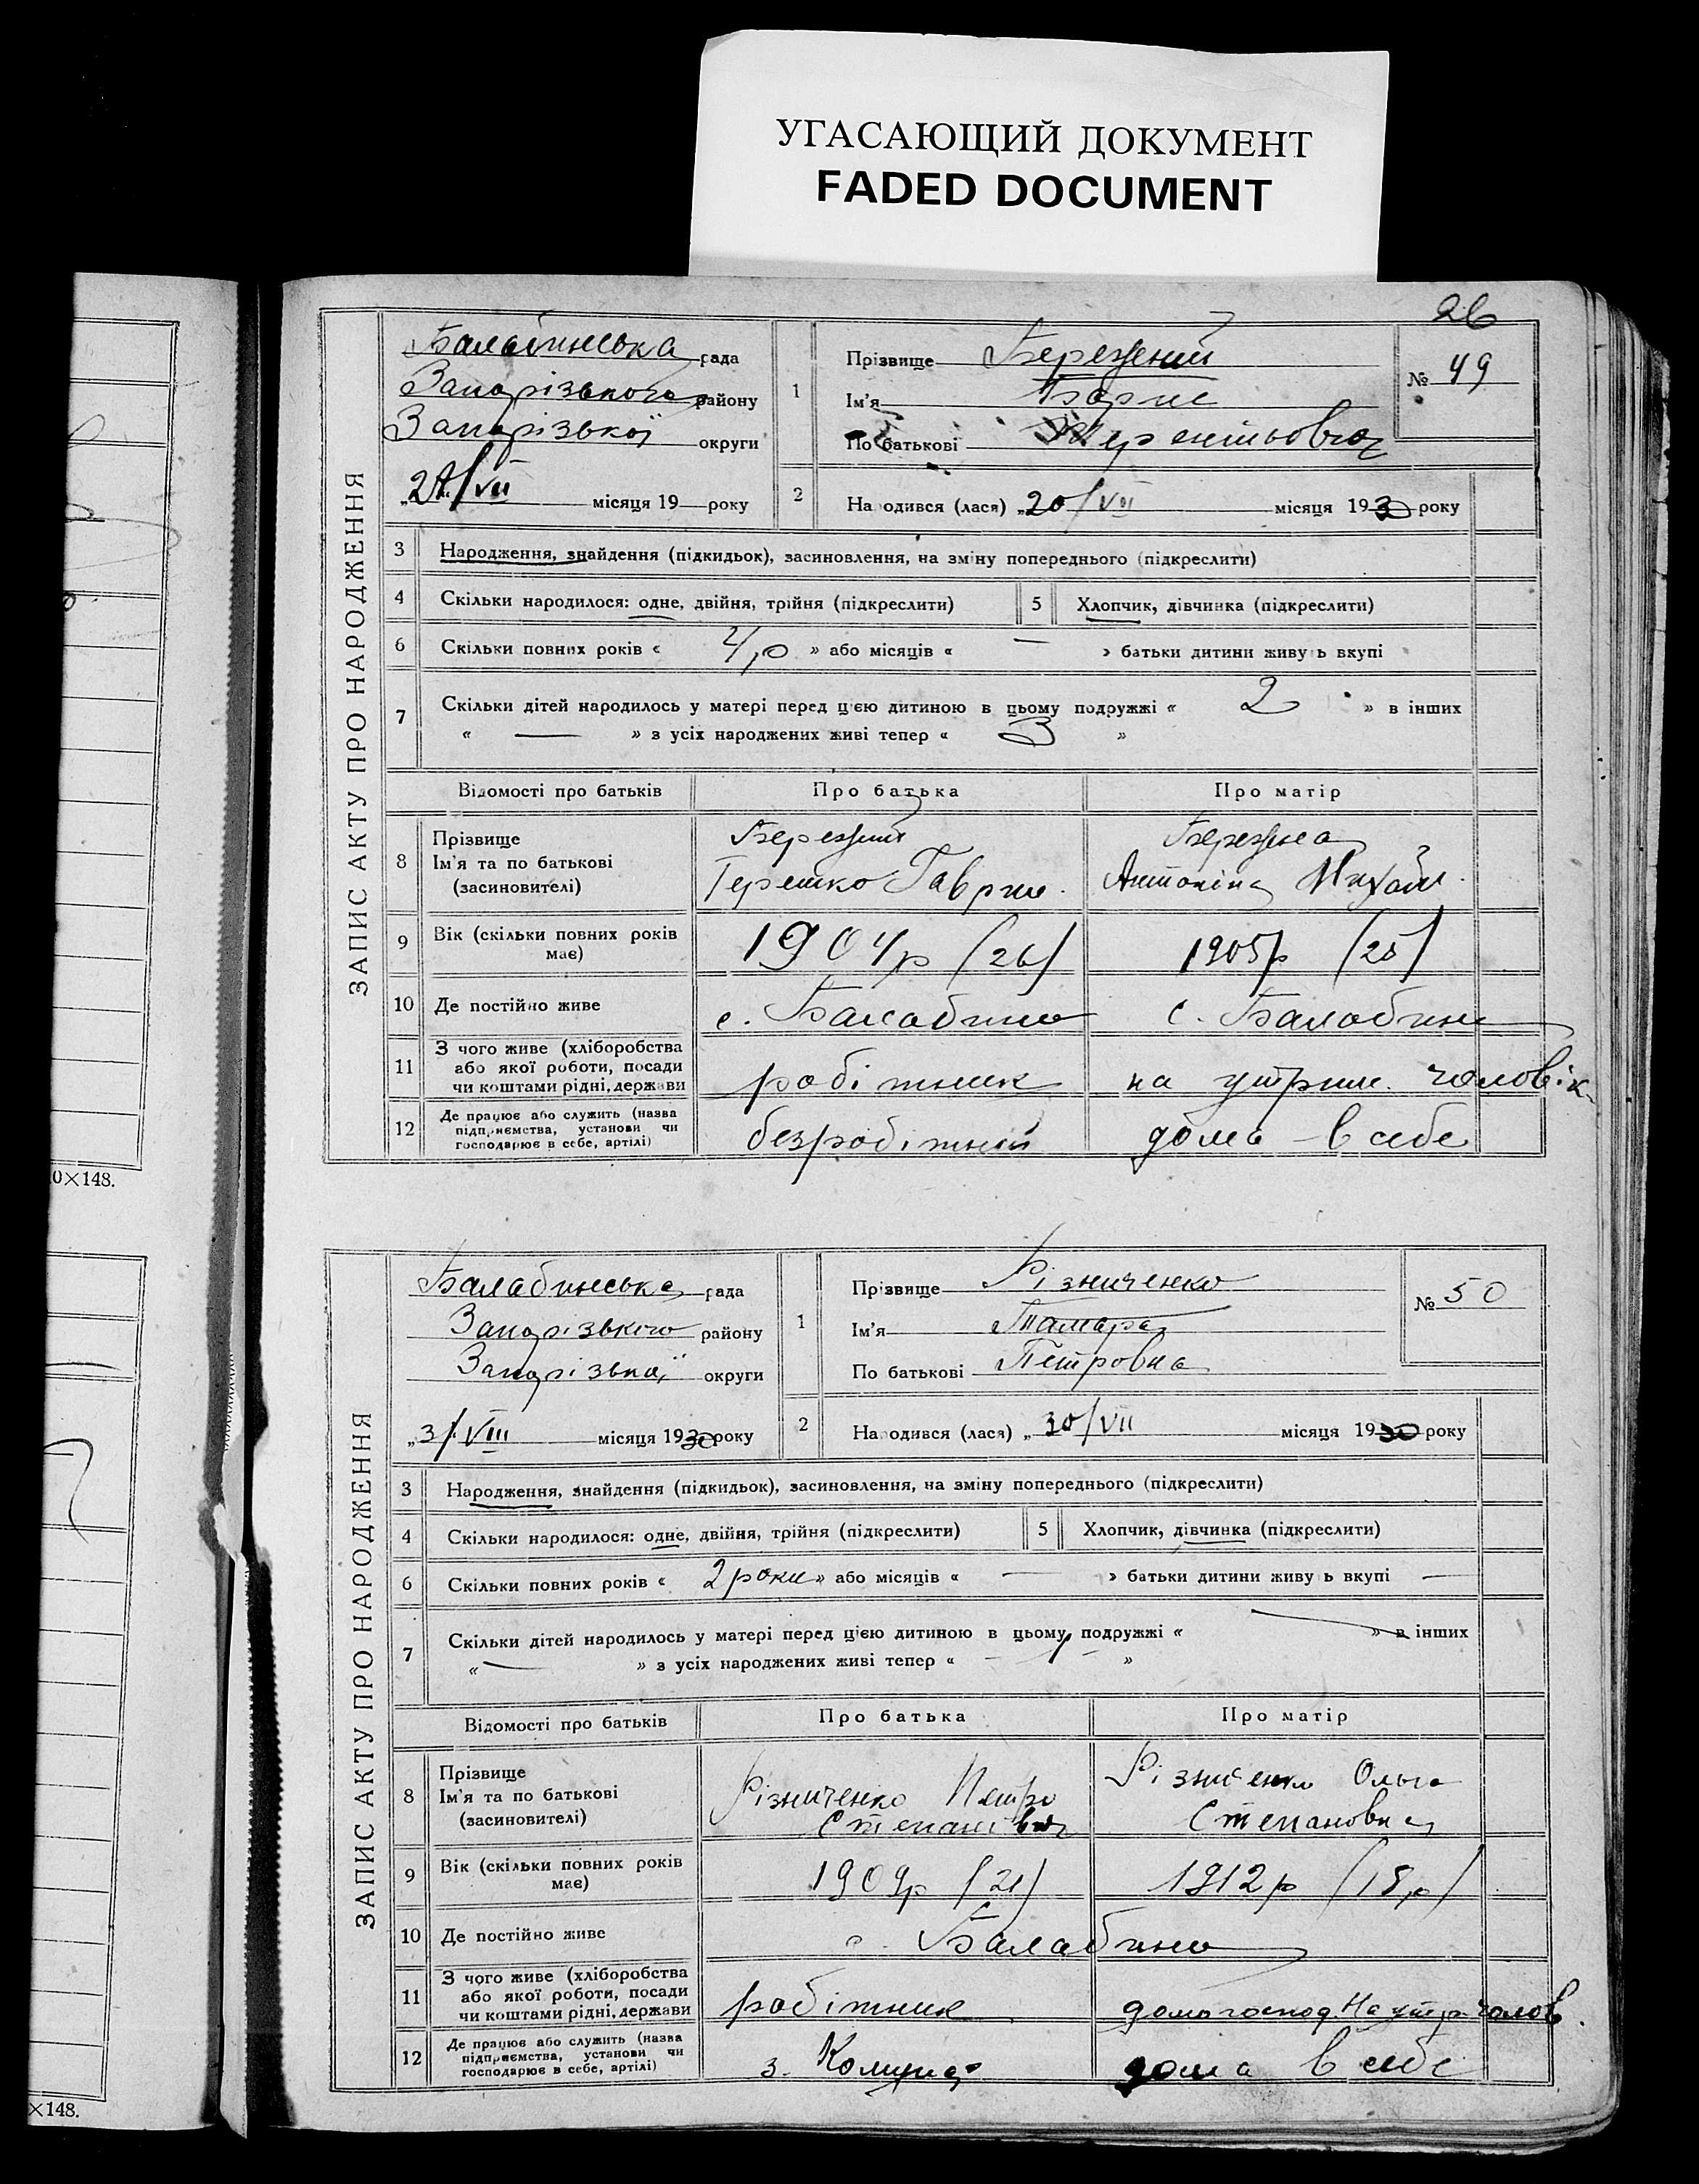 УГАСАЮЩИЙ ДОКУМЕНТ
FADED DOCUMENT
26
ЗАПИС АКТУ ПРО НАРОДЖЕННЯ
Балабинська рада
Запорізького району
Запорізької округи
„ /VII місяця 19 року
1
Прізвище Бережний
Ім'я Борис
По батькові Терентьович
№ 49
2
Народився (лася) „20/VII місяця 1930 року
3 Народження, знайдення (підкидьок), засиновлення, на зміну попереднього (підкреслити)
4 Скільки народилося: одне, двійня, трійня (підкреслити) 5 Хлопчик, дівчинка (підкреслити)
6 Скільки повних років « 4 р » або місяців « — » батьки дитини живуть вкупі
7 Скільки дітей народилось у матері перед цією дитиною в цьому подружжі « 2 » в інших
« — » з усіх народжених живі тепер « 3 »
Відомості про батьків Про батька Про матір
8 Прізвище
Ім'я та по батькові
(засиновителі)
Бережний
Терешко Гаврил.
Бережна
Антоніна Михайл.
9 Вік (скільки повних років має) 1904р (26) 1905р (25)
10 Де постійно живе с. Балабино с. Балабино
11 З чого живе (хліборобства
або якої роботи, посади
чи коштами рідні, держави
робітник на утрим. чоловік
12 Де працює або служить (назва
підприємства, установи чи
господарює в себе, артілі)
безробітний дома – в себе
0×148.
ЗАПИС АКТУ ПРО НАРОДЖЕННЯ
Балабинська рада
Запорізького району
Запорізької округи
„3/VIII місяця 1930 року
1
Прізвище Різниченко
Ім'я Тамара
По батькові Петровна
№ 50
2
Народився (лася) „30/VII місяця 1930 року
3 Народження, знайдення (підкидьок), засиновлення, на зміну попереднього (підкреслити)
4 Скільки народилося: одне, двійня, трійня (підкреслити) 5 Хлопчик, дівчинка (підкреслити)
6 Скільки повних років « 2 роки » або місяців « — » батьки дитини живуть вкупі —
7 Скільки дітей народилось у матері перед цією дитиною в цьому подружжі « — » в інших
« — » з усіх народжених живі тепер « – 1 – »
Відомості про батьків Про батька Про матір
8 Прізвище
Ім'я та по батькові
(засиновителі)
Різниченко Петро
Степанович
Різниченко Ольга
Степановна
9 Вік (скільки повних років має) 1909р (21) 1912р (18р)
10 Де постійно живе с. Балабино
11 З чого живе (хліборобства
або якої роботи, посади
чи коштами рідні, держави
робітник домогоспод. На утр. чолов.
12 Де працює або служить (назва
підприємства, установи чи
господарює в себе, артілі)
з. Комунар дома в себе
×148.